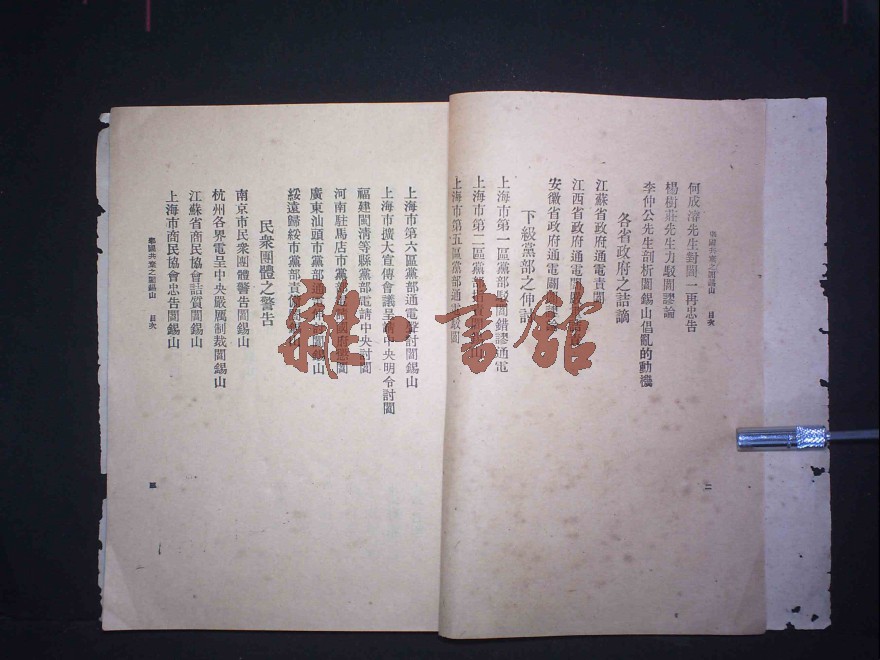 舉國共棄之閻錫山 目次
二
何成濬先生對閻一再忠告
楊樹莊先生力駁閻謬論
李仲公先生剖析閻錫山倡亂的動機
各省政府之詰謫
江蘇省政府通電責閻
江西省政府通電
安徽省政府通電關
下級黨部之伸討
上海市第一區黨部駁閻錯謬通電
上海市第二區黨部
上海市第五區黨部通電駁閻
上海市第六區黨部通電聲討閻錫山
上海市擴大宣傳會議呈請中央明令討閻
福建閩清等縣黨部電請中央討閻
河南駐馬店市黨部
廣東汕頭市黨部通電伸討閻錫山
綏遠歸綏市黨部責備閻錫山
民衆團體之警告
南京市民衆團體警告閻錫山
杭州各界電呈中央嚴厲制裁閻錫山
江蘇省商民協會詰質閻錫山
上海市商民協會忠告閻錫山
舉國共棄之閻錫山 目次
三
雜·書館